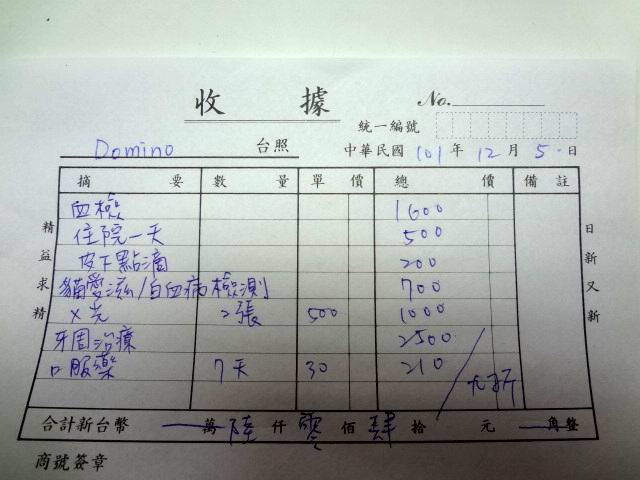 收 據 No.
統一編號
Domino 台照 中華民國 101 年 12 月 5 日
摘 要 數 量 單 價 總 價 備 註
血檢 1600
住院一天 500
皮下點滴 200
貓愛滋/白血病檢測 700
X光 2張 500 1000
牙周治療 2500
口服藥 7天 30 210
九折
合計新台幣 萬 陸 仟 零 佰 肆 拾 元 角整
商號簽章
精益求精
日新又新